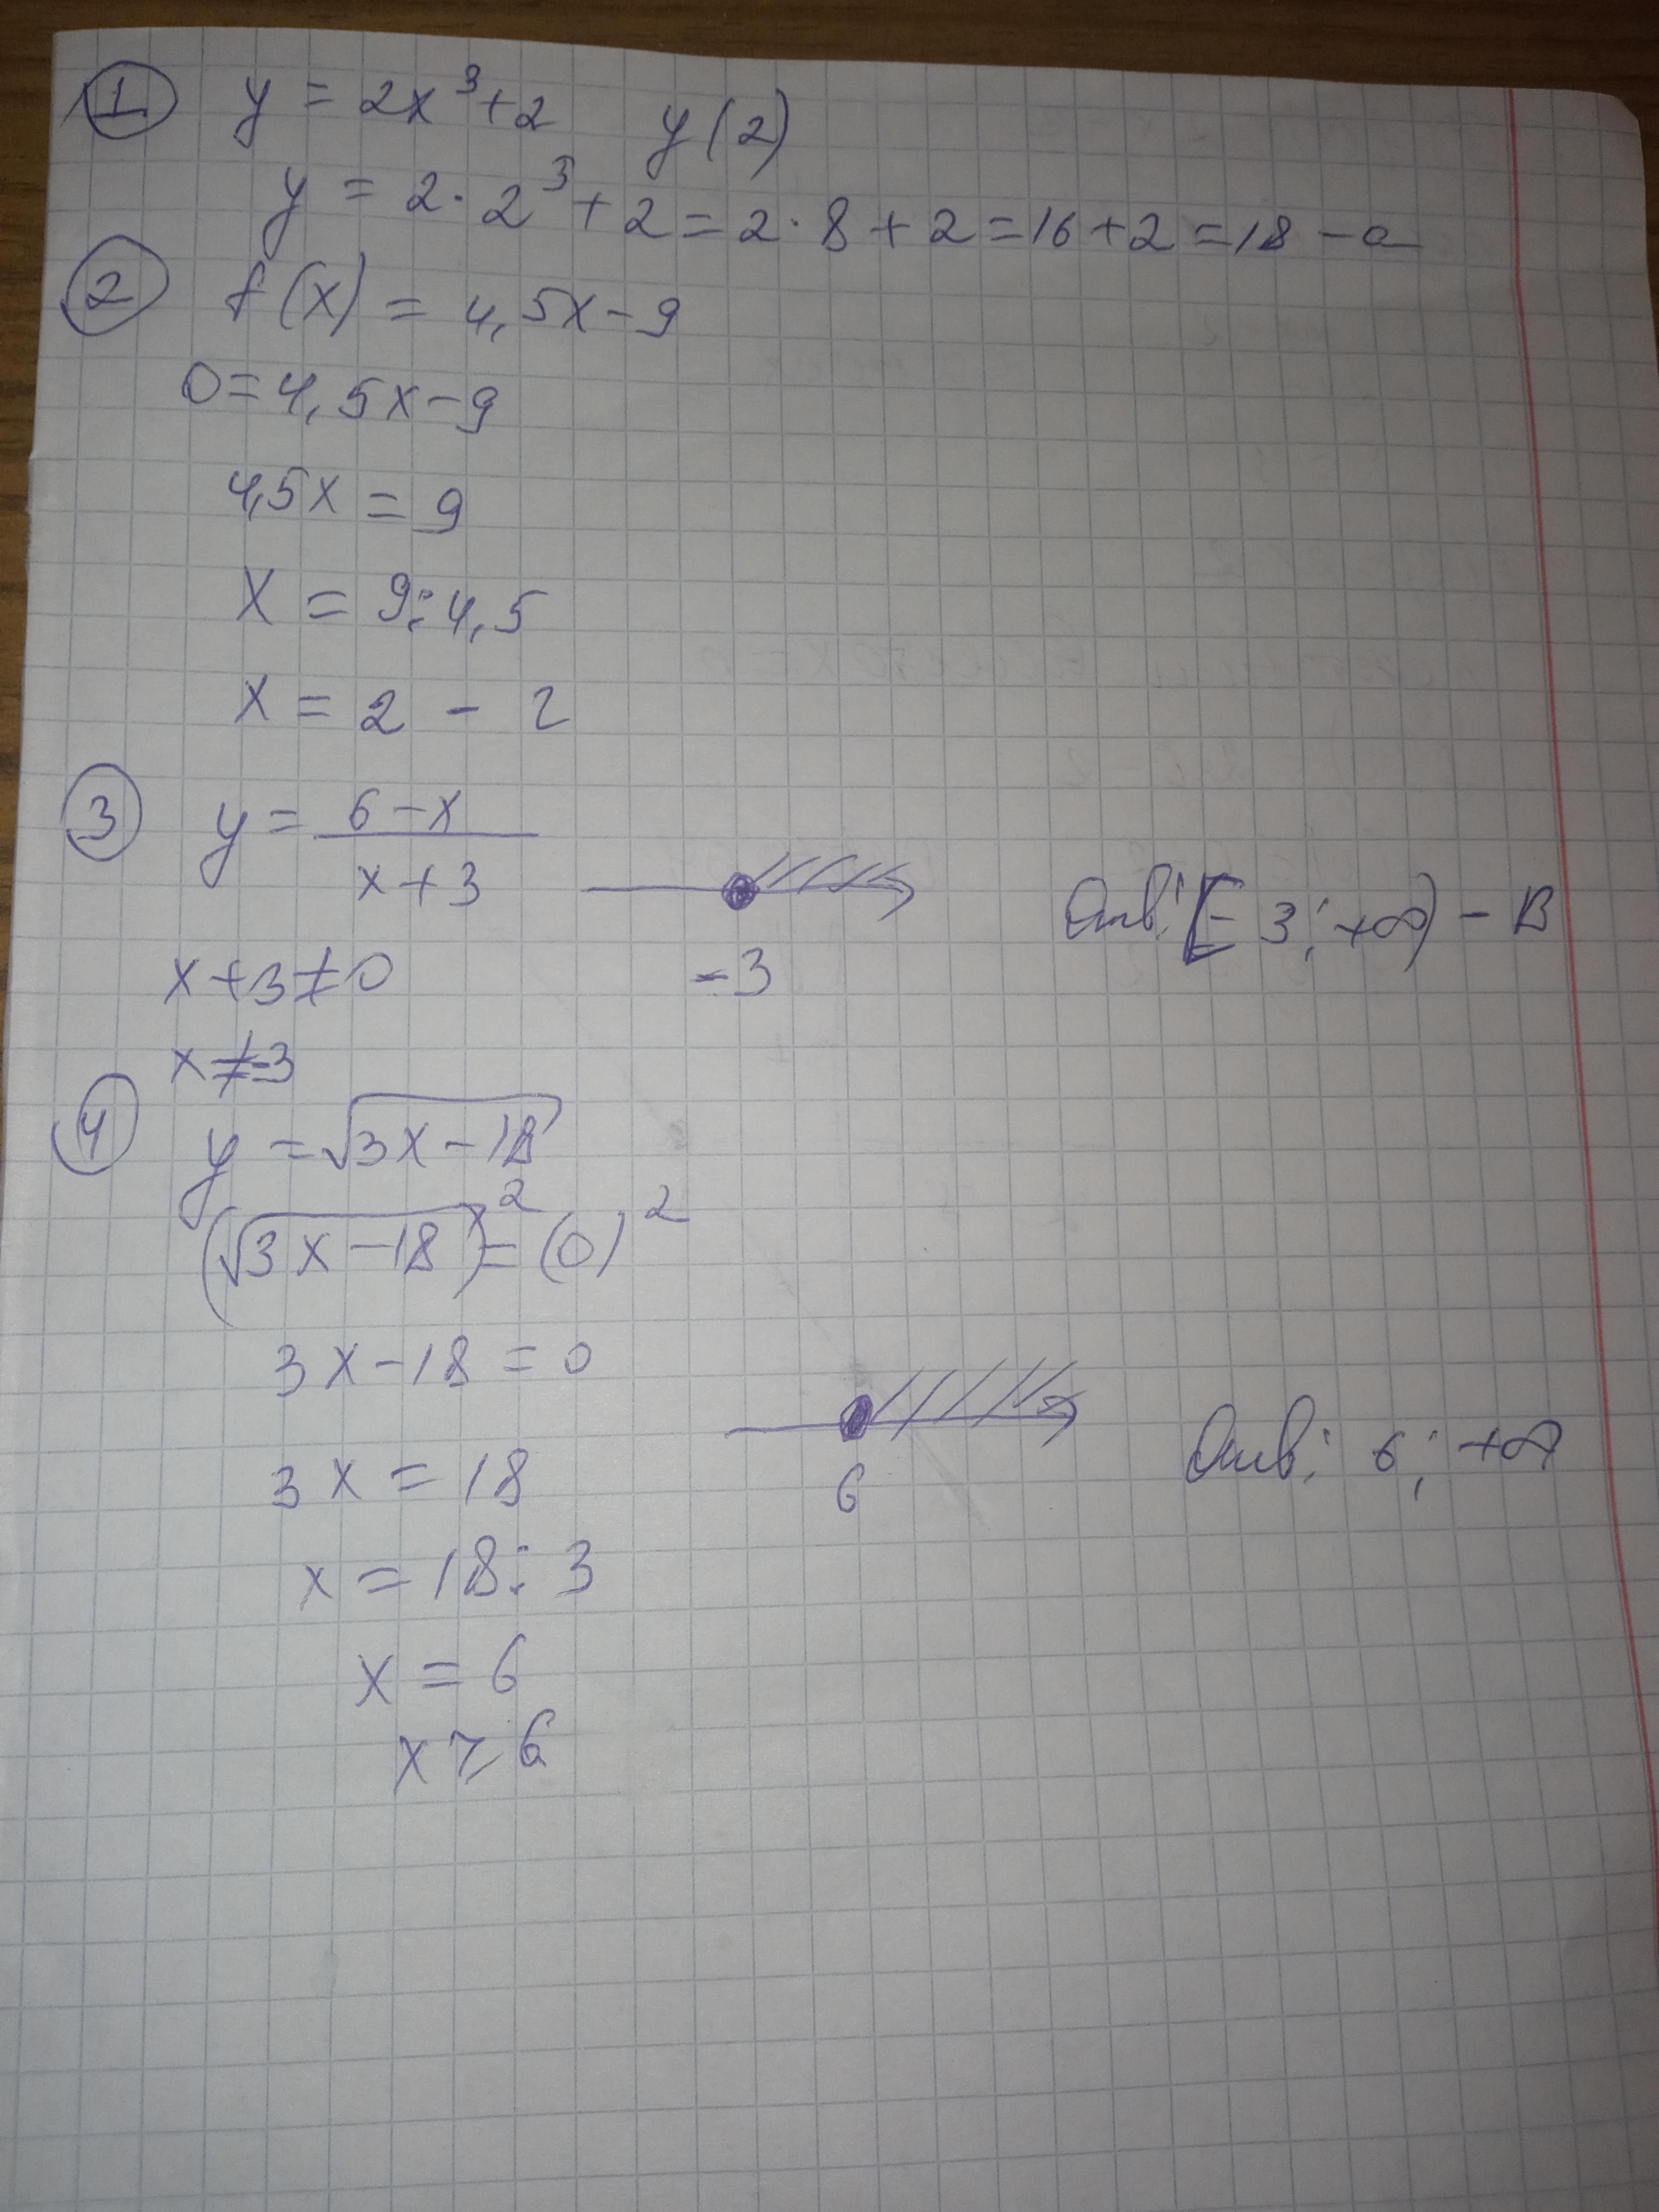 1 y = 2x³+2 y(2)
y = 2·2³+2=2·8+2=16+2=18 – а
2 f(x) = 4,5x–9
0=4,5x–9
4,5x = 9
x = 9:4,5
x = 2 – г
3 y = 6–x / x+3
-3
Отв: [–3; +∞) – В
x+3≠0
x≠-3
4 y = √3x–18
(√3x–18)² = (0)²
3x–18 = 0
6
Отв: 6; +∞
3x = 18
x = 18:3
x = 6
x ≥ 6